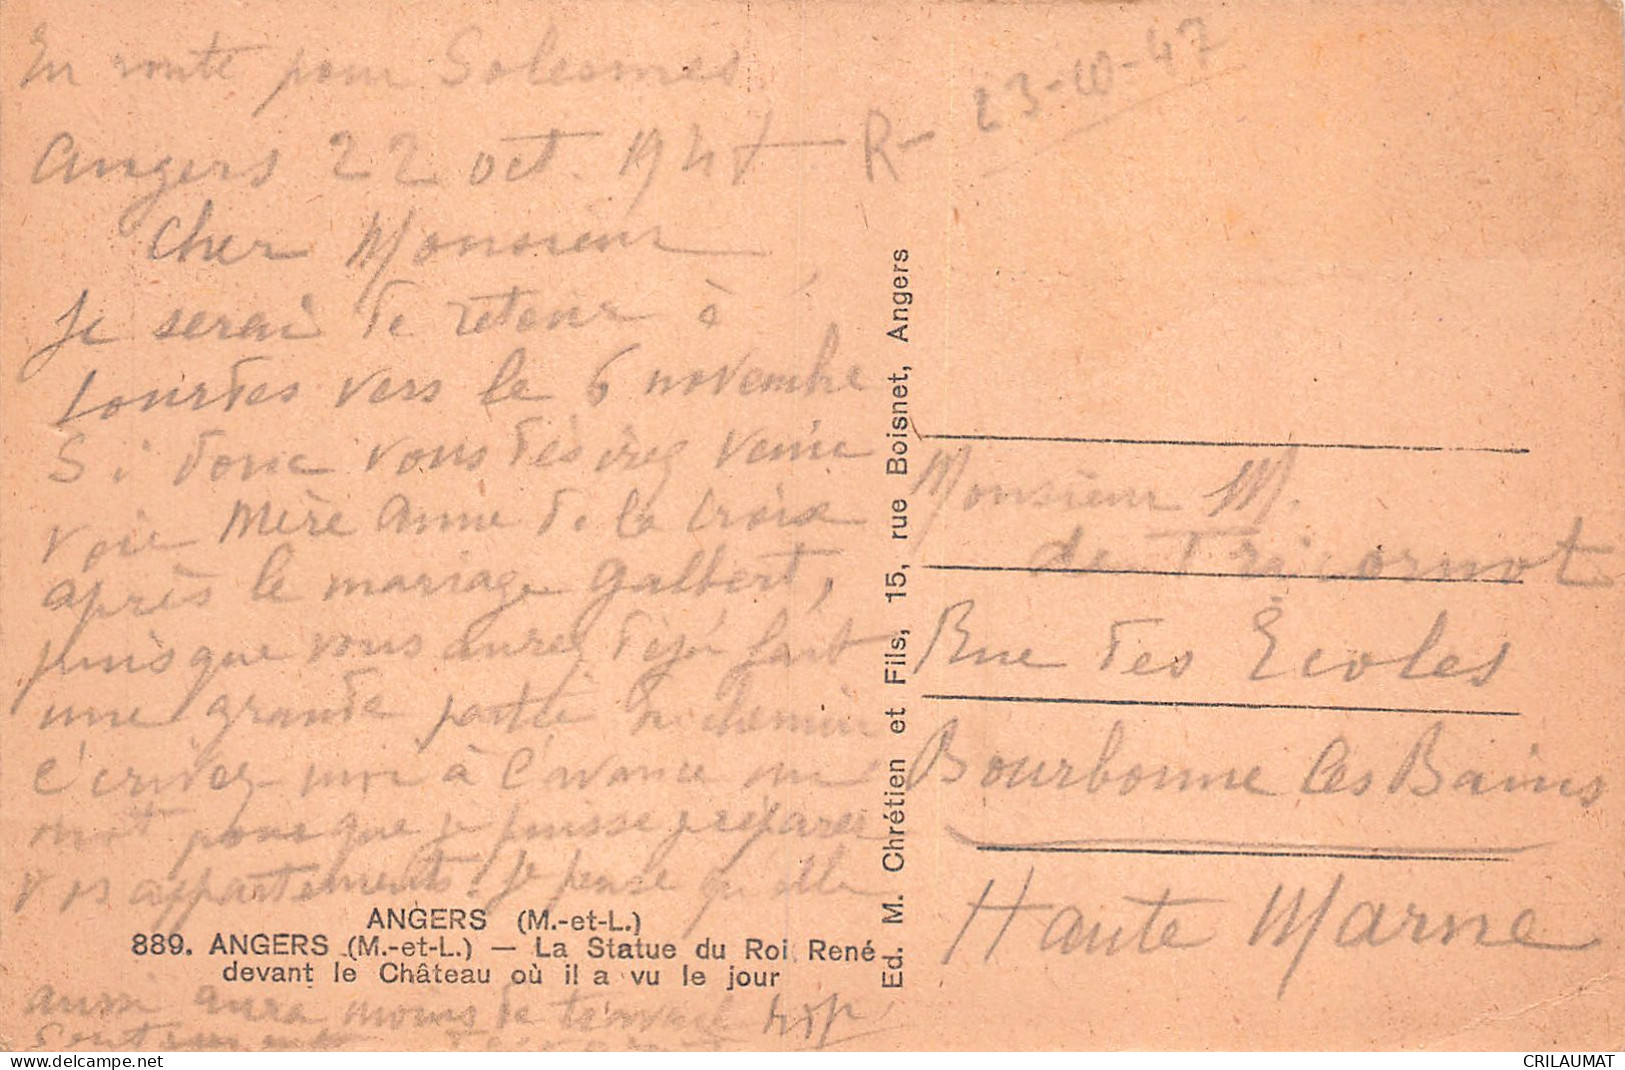 En route pour Solesmes
Angers 22 oct. 1947 — R- 23-10-47
Cher Monsieur
Je serai de retour à
Lourdes vers le 6 novembre
Si donc vous désirez venir
voir Mère Anne de la Croix
après le mariage Galbert,
puisque vous aurez déjà fait
une grande partie du chemin
écrivez-moi à l'avance un
mot pour que je puisse préparer
vos appartements. Je pense qu'elle
aussi aura moins de travail
ANGERS (M.-et-L.)
889. ANGERS (M.-et-L.) — La Statue du Roi René
devant le Château où il a vu le jour
Ed. M. Chrétien et Fils, 15, rue Boisnet, Angers
Monsieur M.
de Tricornot
Rue des Écoles
Bourbonne les Bains
Haute Marne
www.delcampe.net
CRILAUMAT